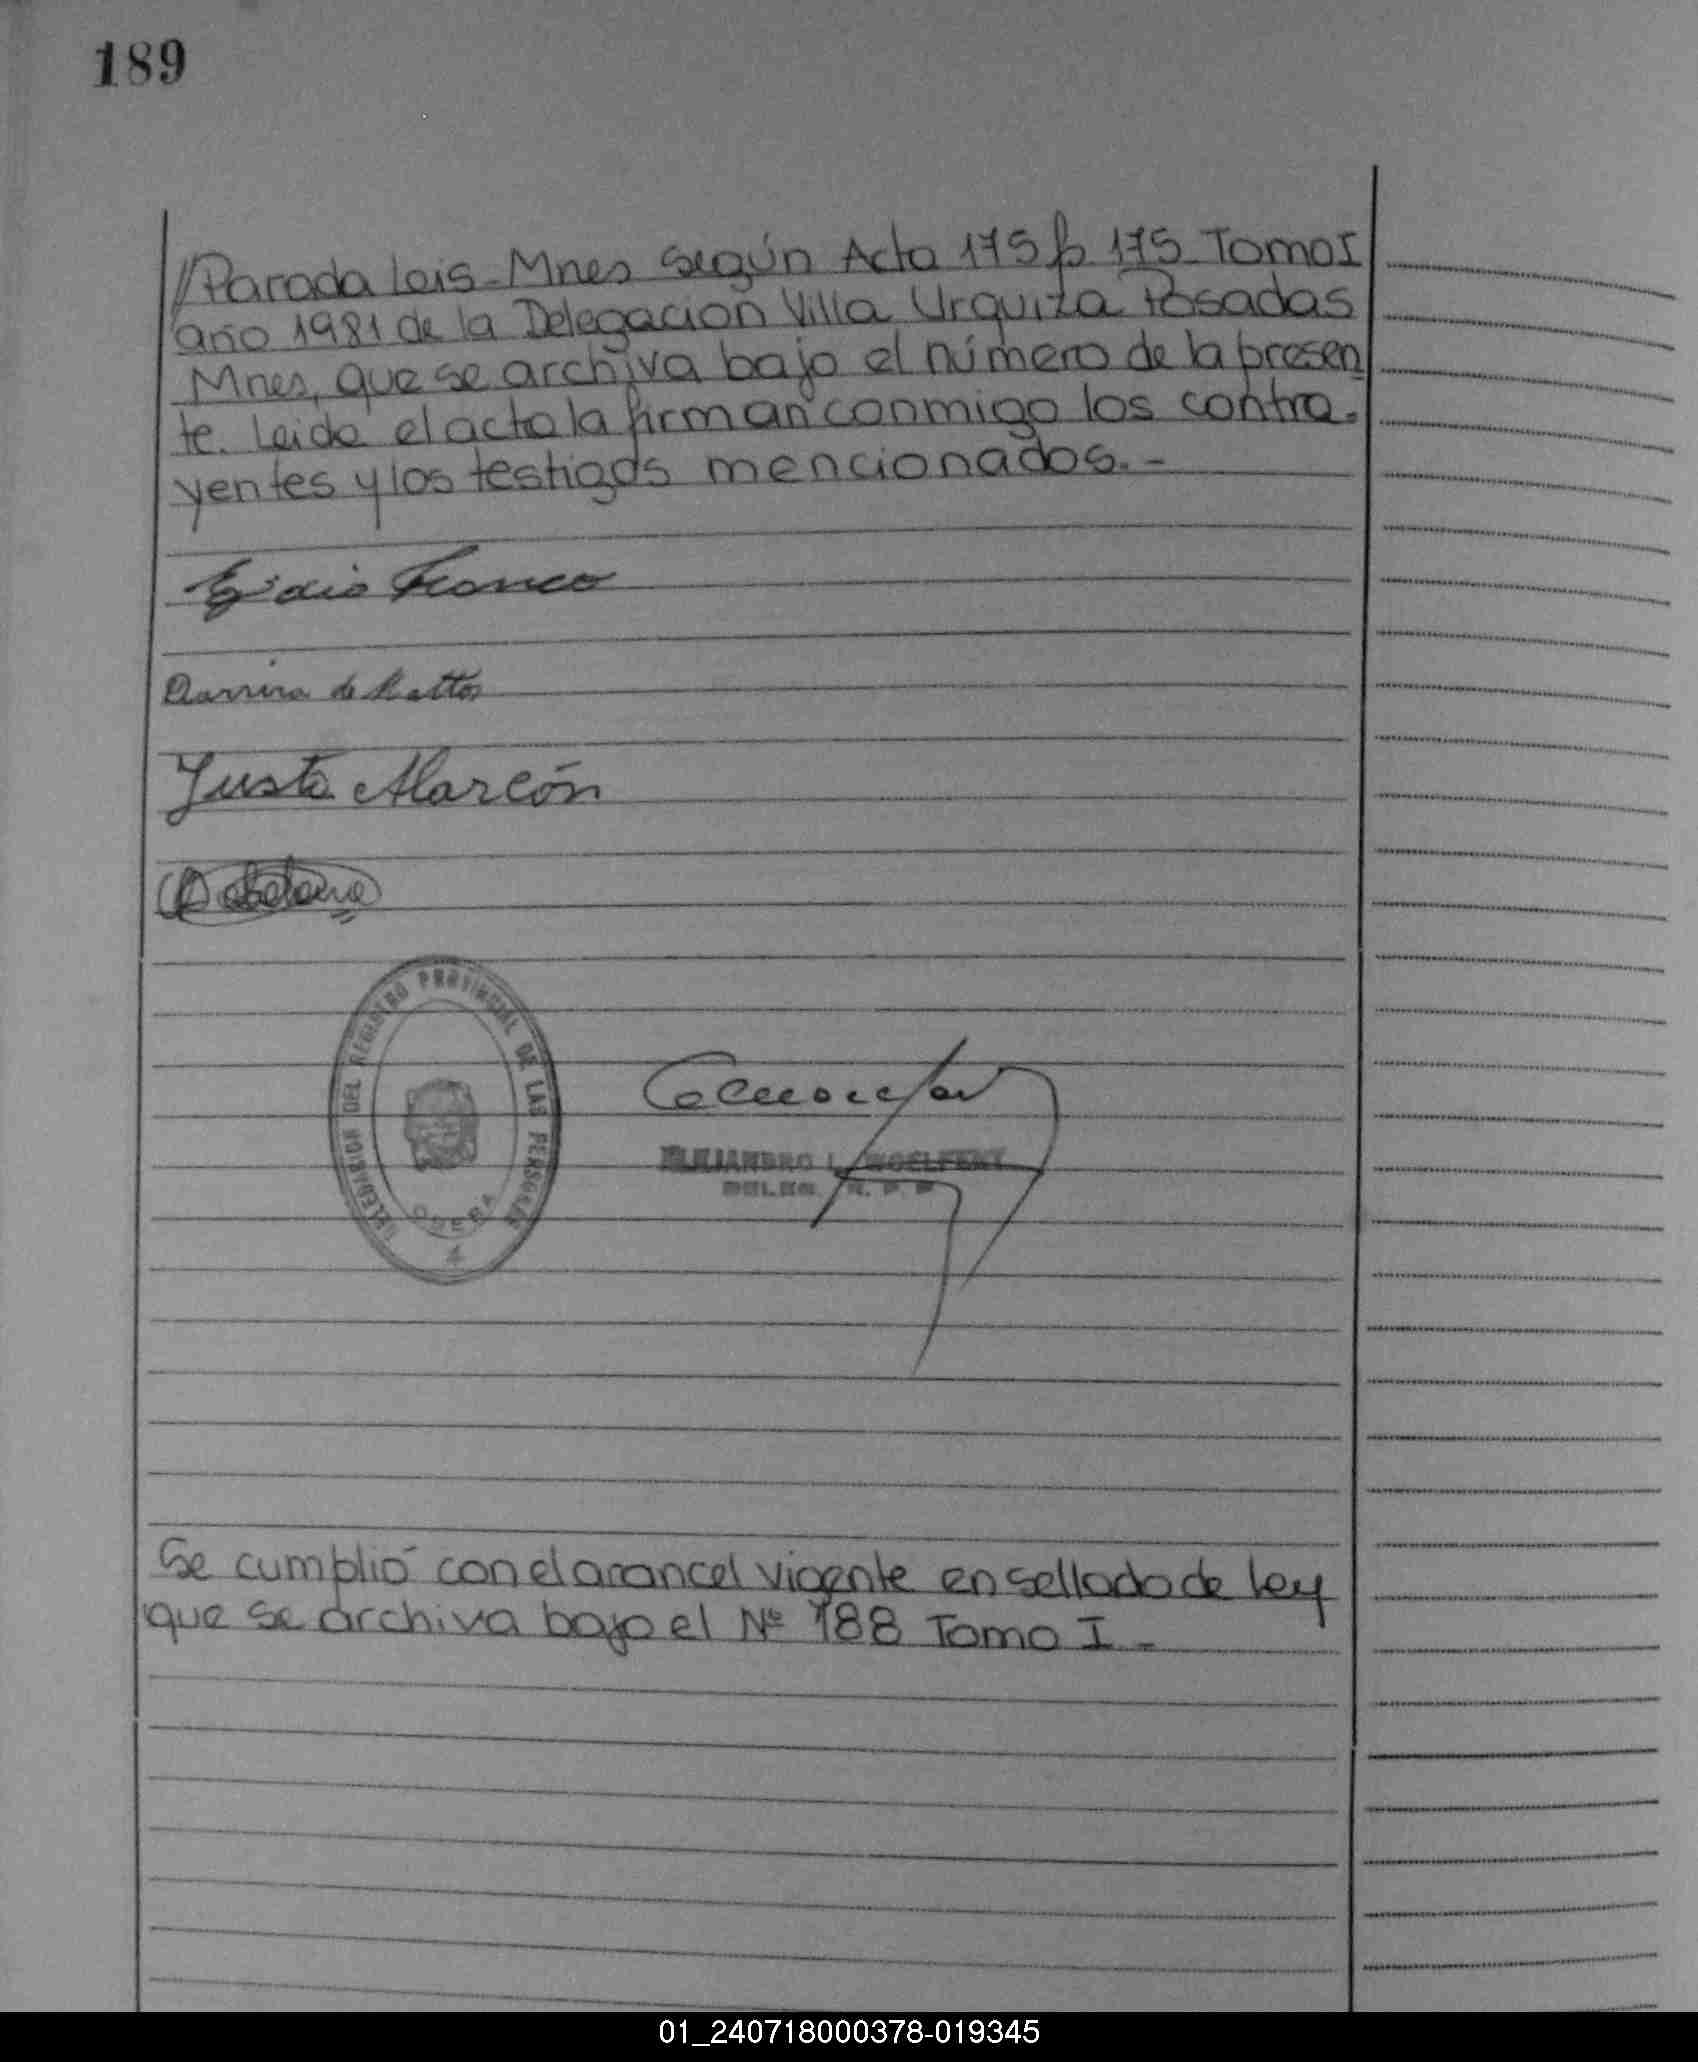 189
/Parada Leis - Mnes según Acta 175 fo 175 Tomo I
año 1981 de la Delegacion Villa Urquiza Posadas
Mnes, que se archiva bajo el número de la presen
te. Leida el acta la firman conmigo los contra-
yentes y los testigos mencionados. -
Franco
de Mattos
Justo Alarcón
DELEGACION DEL REGISTRO PROVINCIAL DE LAS PERSONAS
OBERA
4
ALEJANDRO L.
DELEG. R. P. P.
Se cumplió con el arancel vigente en sellado de Ley
que se archiva bajo el Nº 188 Tomo I -
01_240718000378-019345